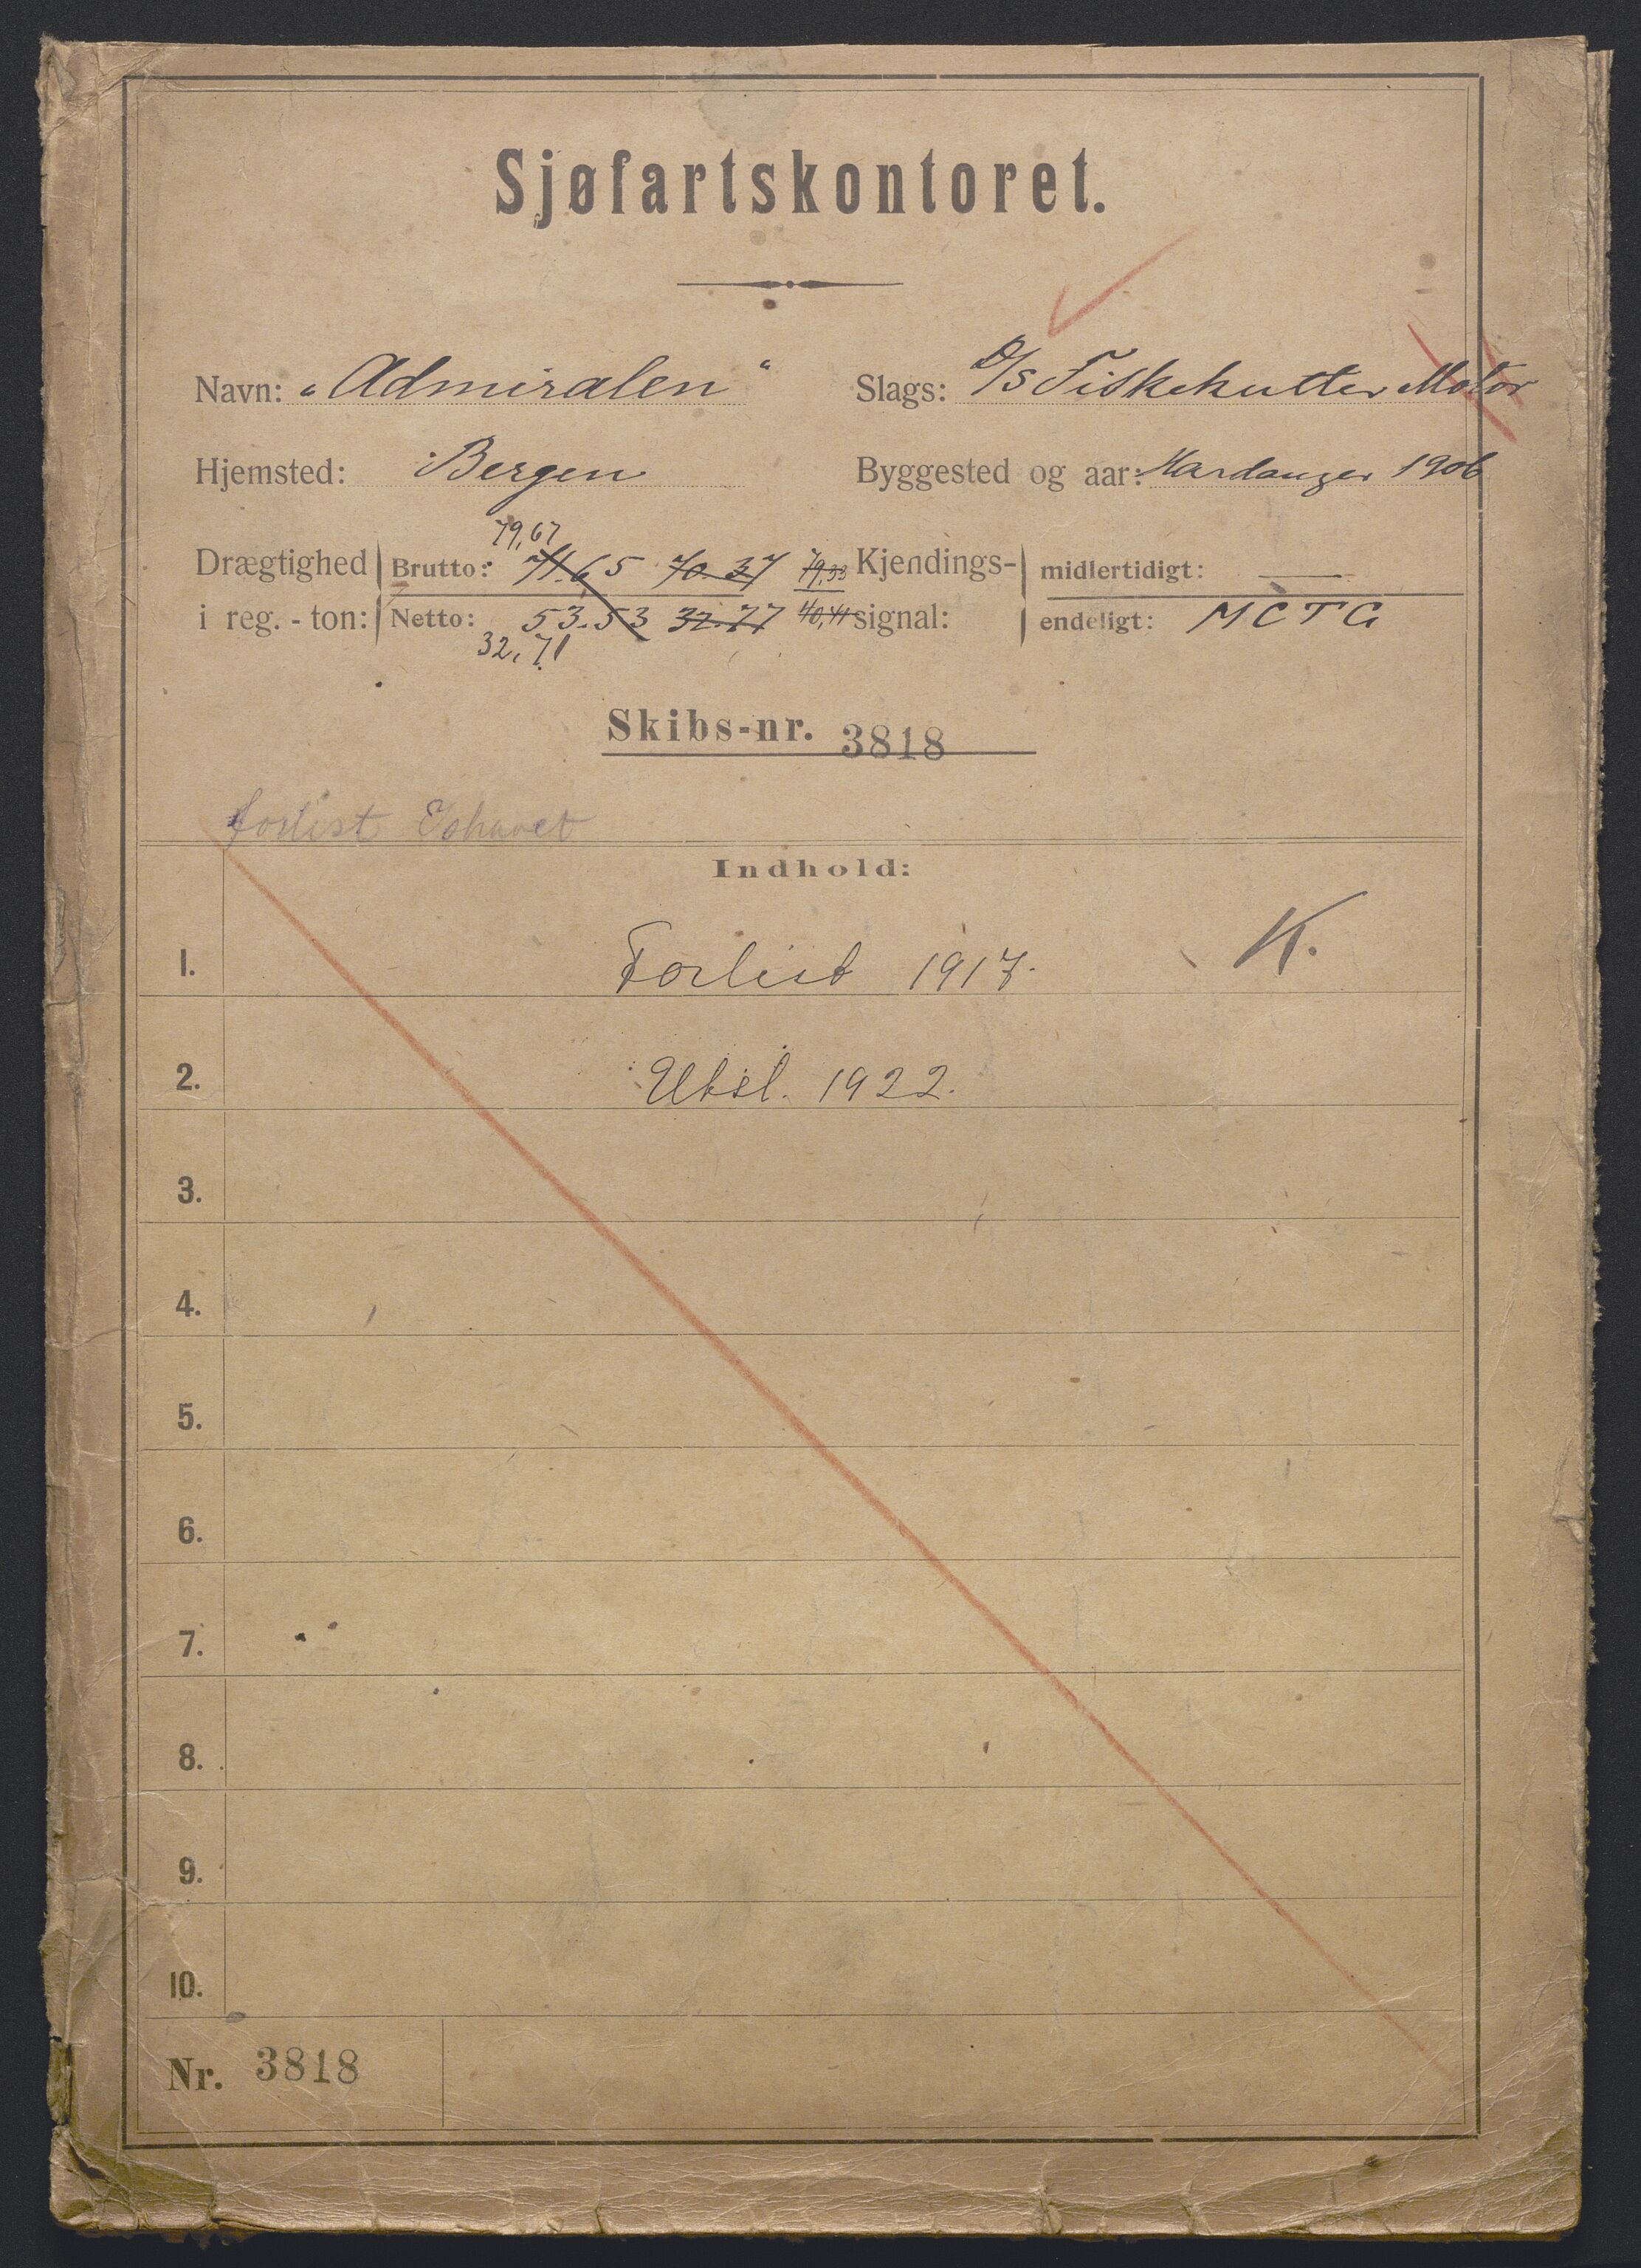 Sjøfartskontoret.
Navn: "Admiralen" Slags: D/S Fiskekutter Motor
Hjemsted: Bergen Byggested og aar: Hardanger 1906
79,67
Drægtighed Brutto: 71.65 70.37 79,33 Kjendings- midlertidigt: —
i reg.-ton: Netto: 53.53 32.77 40,41 signal: endeligt: MCTG
32,71
Skibs-nr. 3818
forlist Ishavet
Indhold:
1. Forlist 1917. K.
2. Utsl. 1922.
3.
4.
5.
6.
7.
8.
9.
10.
Nr. 3818